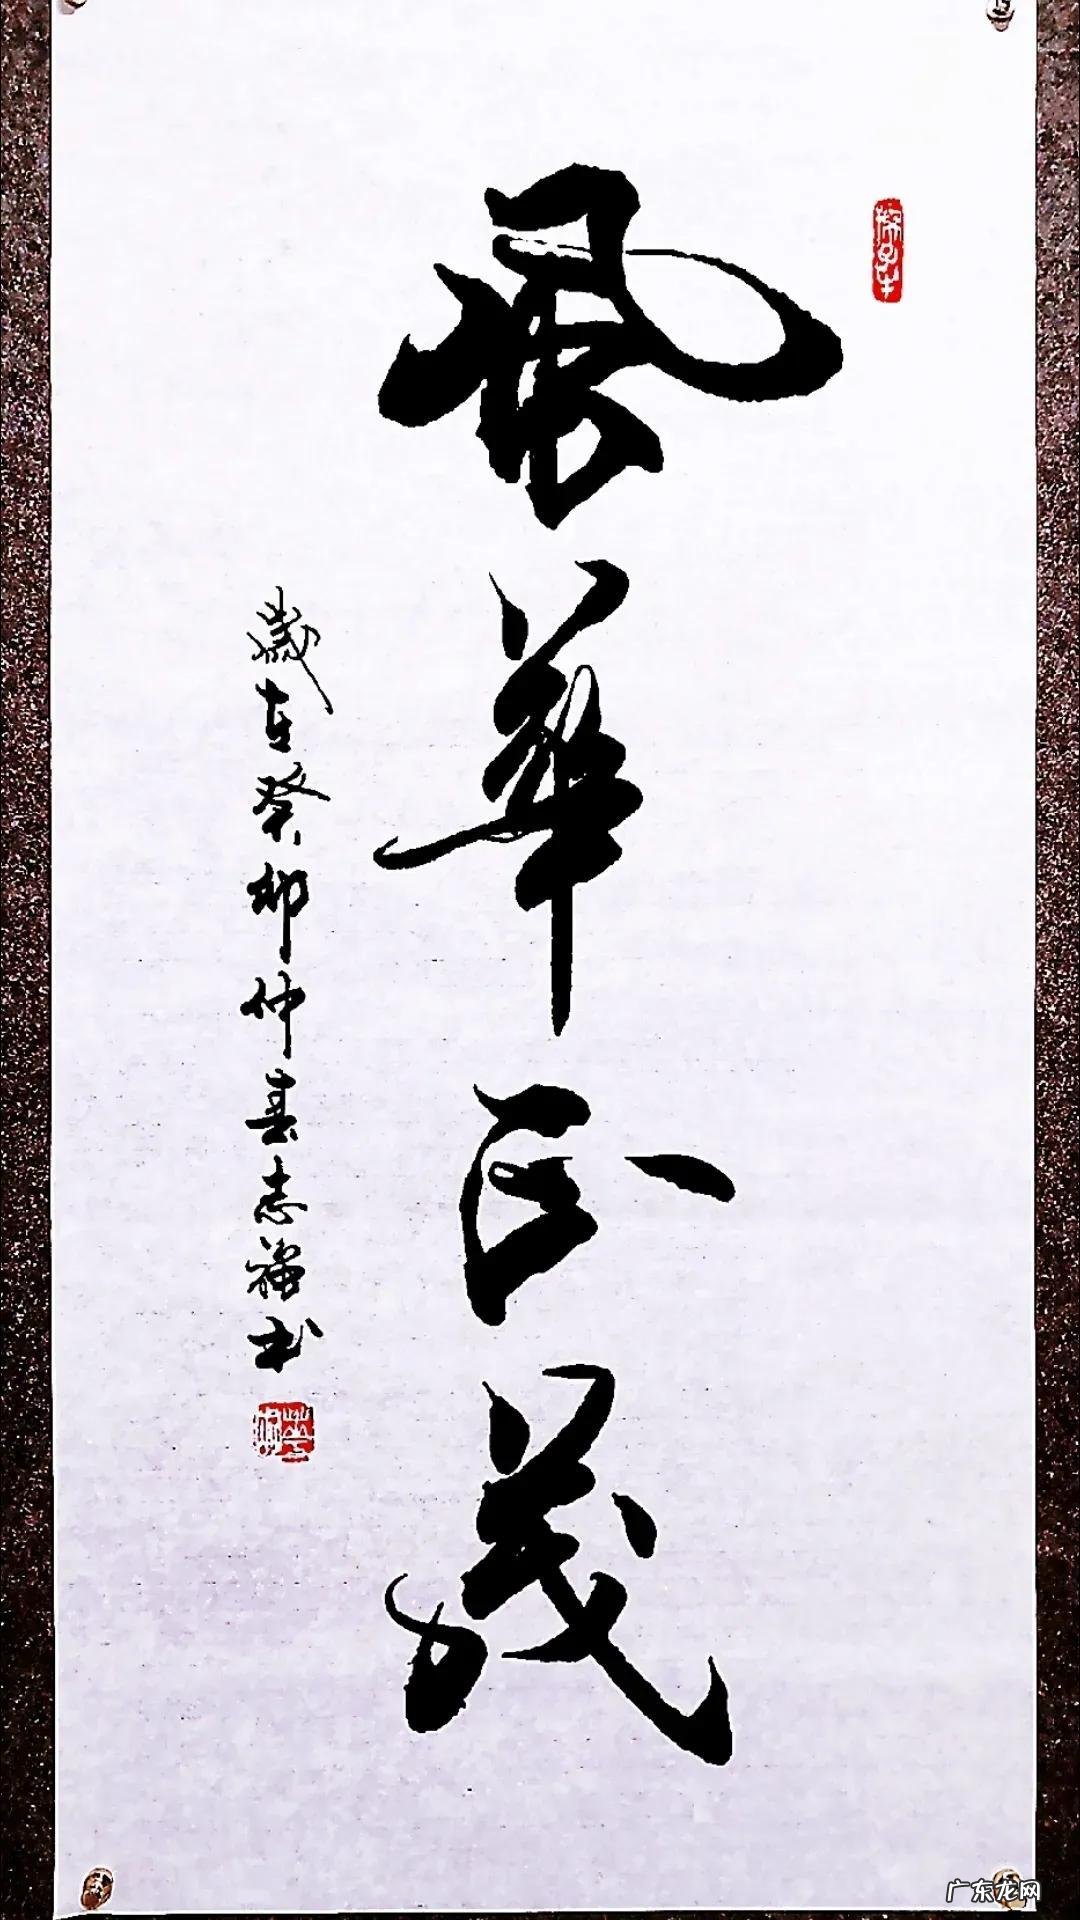 風華正茂
歲在癸卯仲春志強书
广东龙网